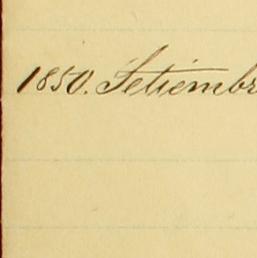 1850. Setiembr